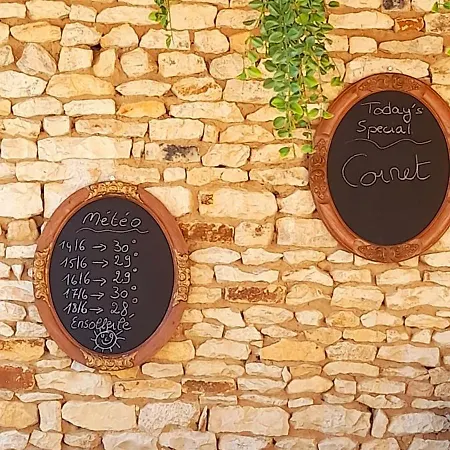 Météo
14/6 → 30°
15/6 → 29°
16/6 → 29°
17/6 → 30°
18/6 → 28°
Ensolleillé
Today's
Special